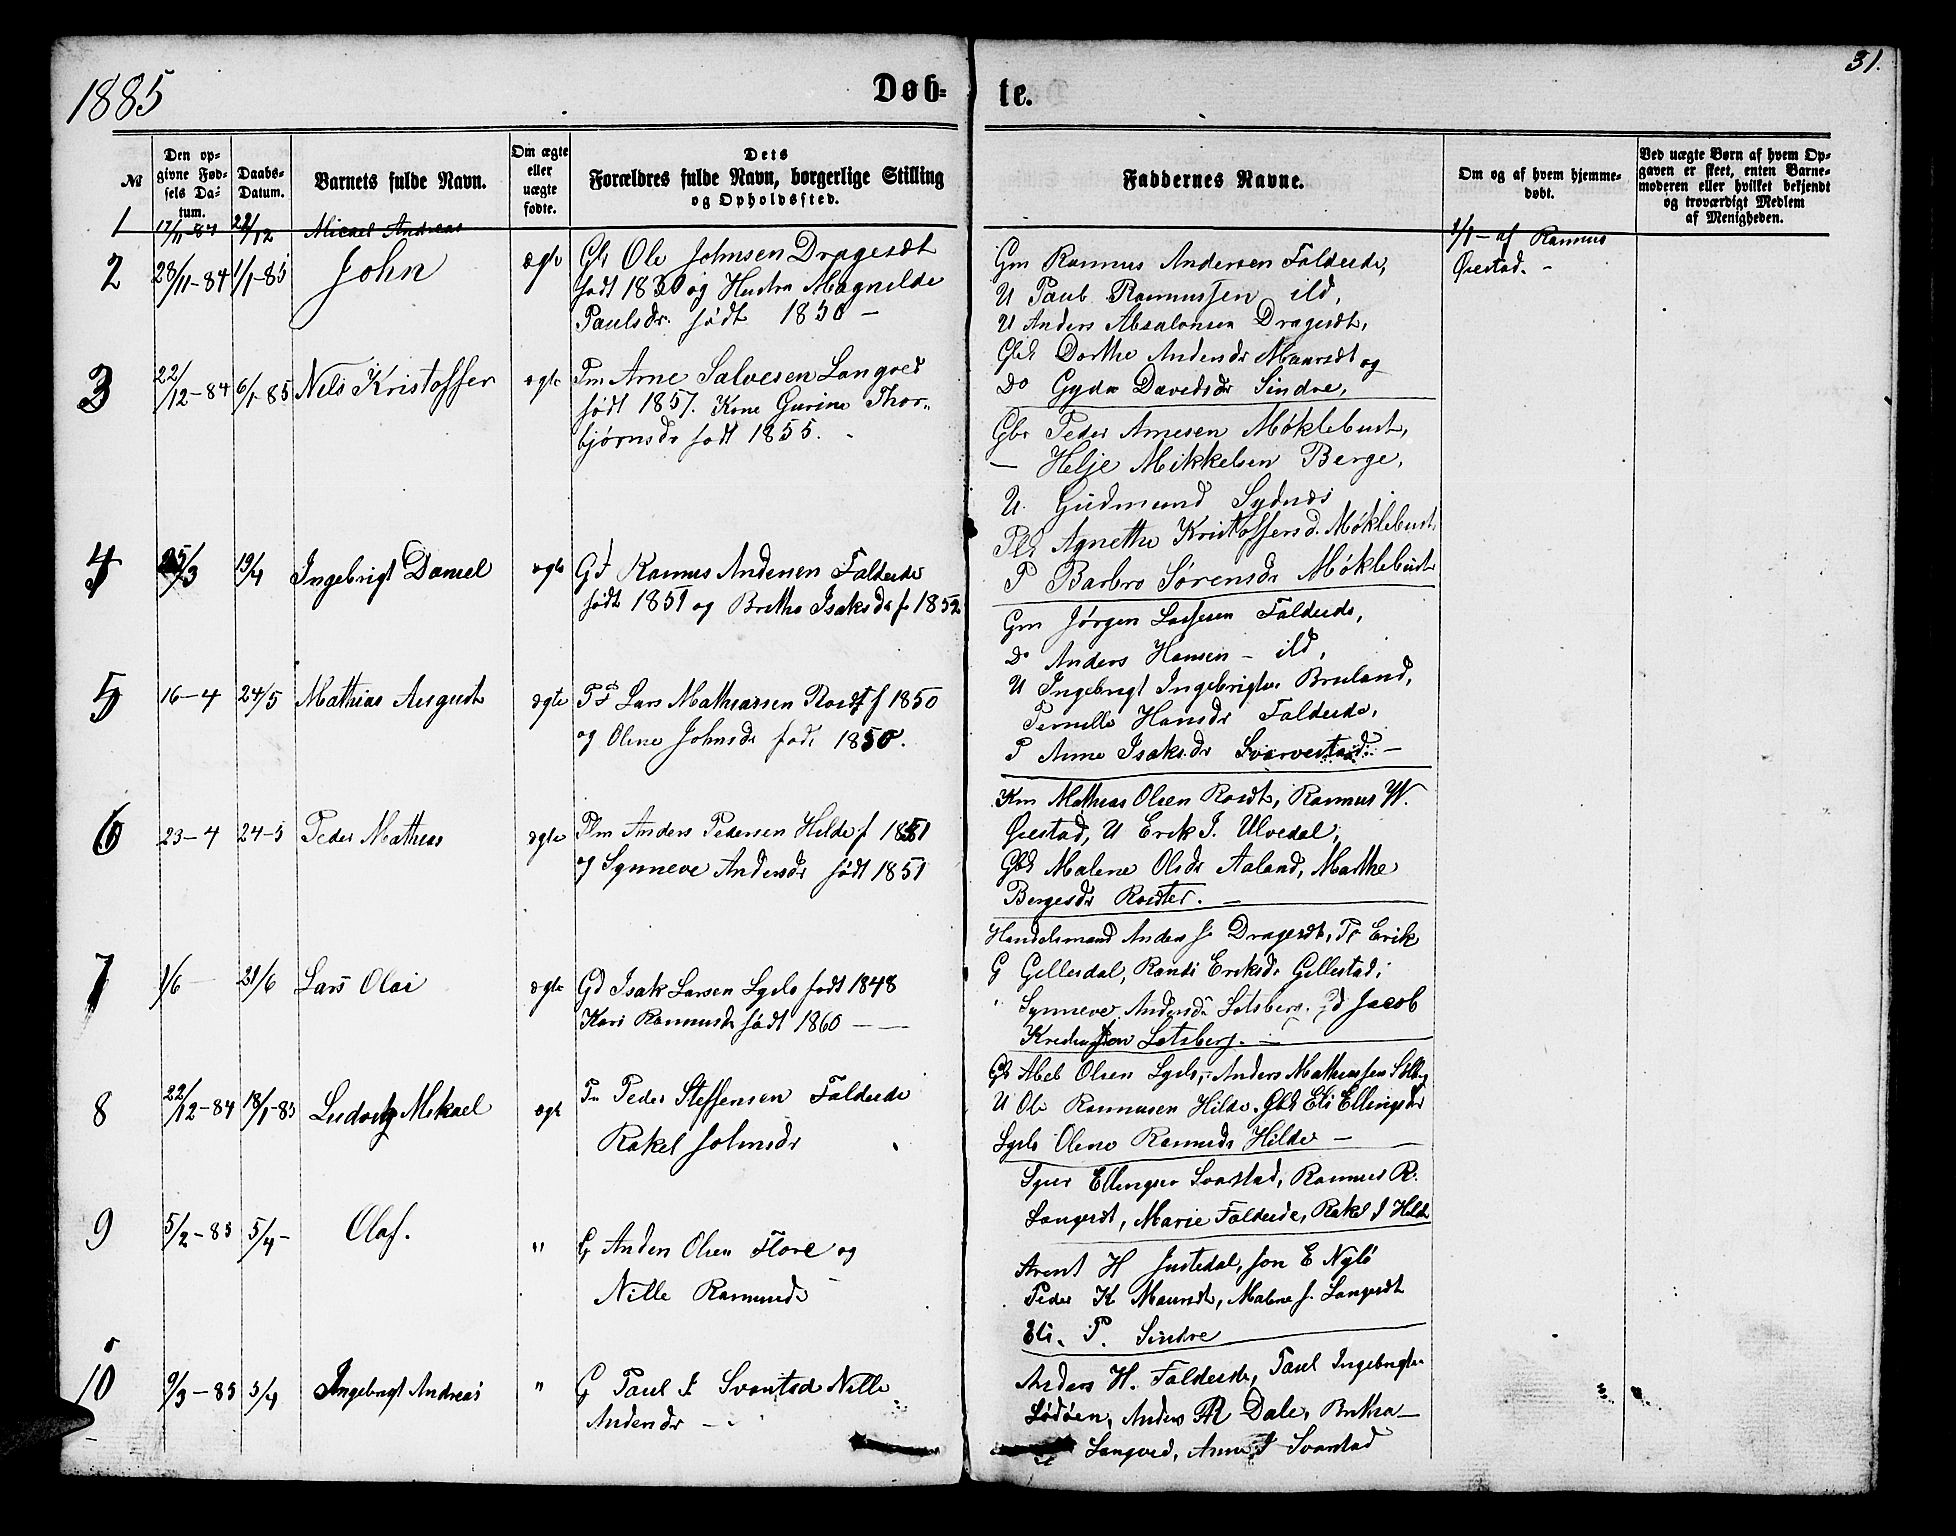 1885
Døb-
te.
31.
№
Den op-
givne Fød-
sels Da-
tum.
Daabs-
Datum.
Barnets fulde Navn.
Om ægte
eller
uægte
fødte.
Dets
Forældres fulde Navn, borgerlige Stilling
og Opholdssted.
Faddernes Navne.
Om og af hvem hjemme-
døbt.
Ved uægte Børn af hvem Op-
gaven er skeet, enten Barne-
moderen eller hvilket bekjendt
og troværdigt Medlem
af Menigheden.
1 17/11-84 Micael Andreas
2 28/11-84 1/1-85 John ægte
Ole Johnsen Dragesdt
født 1830 og Hustru Magnilde
Paulsdr. født 1850 -
3 22/12-84 6/1-85 Nels Kristoffer ægte
Pm Arne Salvesen Langved
født 1857. Kone Gurine Thor-
bjørnsdr født 1855.
4 25/3 19/4 Ingebrigt Daniel ægte
Rasmus Andersen Faldeide
født 1851 og Brithe Isaksdr f. 1852
5 16-4 24/5 Mathias August ægte
Lars Mathiassen Rosdt f 1850
og Oline Johnsdr født 1850.
6 23-4 24-5 Peder Mathias ægte
Plm Anders Pedersen Hilde f 1851
og Synneve Andersdr født 1851
7 1/6 21/6 Lars Olai ægte
Gd Isak Larsen Lyslo født 1848
Kari Rasmusdr født 1860 -
8 22/12-84 18/1-85 Ludvig Mikael ægte
Peder Steffensen Faldeide
Rakel Johnsdr
9 5/2-85 5/4- Olaf. "
G Anders Olsen Flore og
Nille Rasmusdr
10 9/3-85 5/4 Ingebrigt Andreas "
G Paul I Svarstad Nille
Andersdr -
Gm Rasmus Andersen Faldeide,
U Paul Rasmussen ild,
U Anders Absalonsen Dragesdt,
Gbd Dorthe Andersdr Maursdt og
Do Gyda Davidsdr Sindre,
Gbr Peder Arnesen Møklebust,
- Helje Mikkelsen Berge,
U. Gudmund Sydnes
Agnethe Kristoffersd. Møklebust
P Barbro Sørensdr Møklebust
Gm Jørgen Lassesen Faldeide,
Do Anders Hansen - ild,
U Ingebrigt Ingebrigtsen Bruland,
Pernille Hansdr Faldeide,
P Anne Isaksdr Svarvestad -
Km Mathias Olsen Rosdt, Rasmus W.
Ørestad, U Erik J. Ulvedal,
Gbd Malene Olsdr Aaland, Marthe
Bergesdr Rosdtet. -
Handelsmand Anders J. Dragesdt, Erik
G Gellesdal, Randi Eriksdr Gellestad,
Synneve Andersdr Lotsberg. Jacob
Lotsberg. -
Abel Olsen Lyslo, Anders Mathiassen
U Ole Rasmusen Hilde. Gbd Eli Ellingsdr
Lyslo Oline Rasmusdr Hilde -
Ellingsen Svarstad, Rasmus R.
Langesdt, Marie Faldeide, Rakel I Hilde
Arent H Justedal, Jon E Nylø
Peder K Maursdt, Malene J. Langesdt
Eli. P. Sindre
Anders H. Faldeide, Paul Ingebrigtsen
Lødøen, Anders R Dale, Brithe
Langved, Anne I Svarstad
1/1 - af Rasmus
Ørestad. -